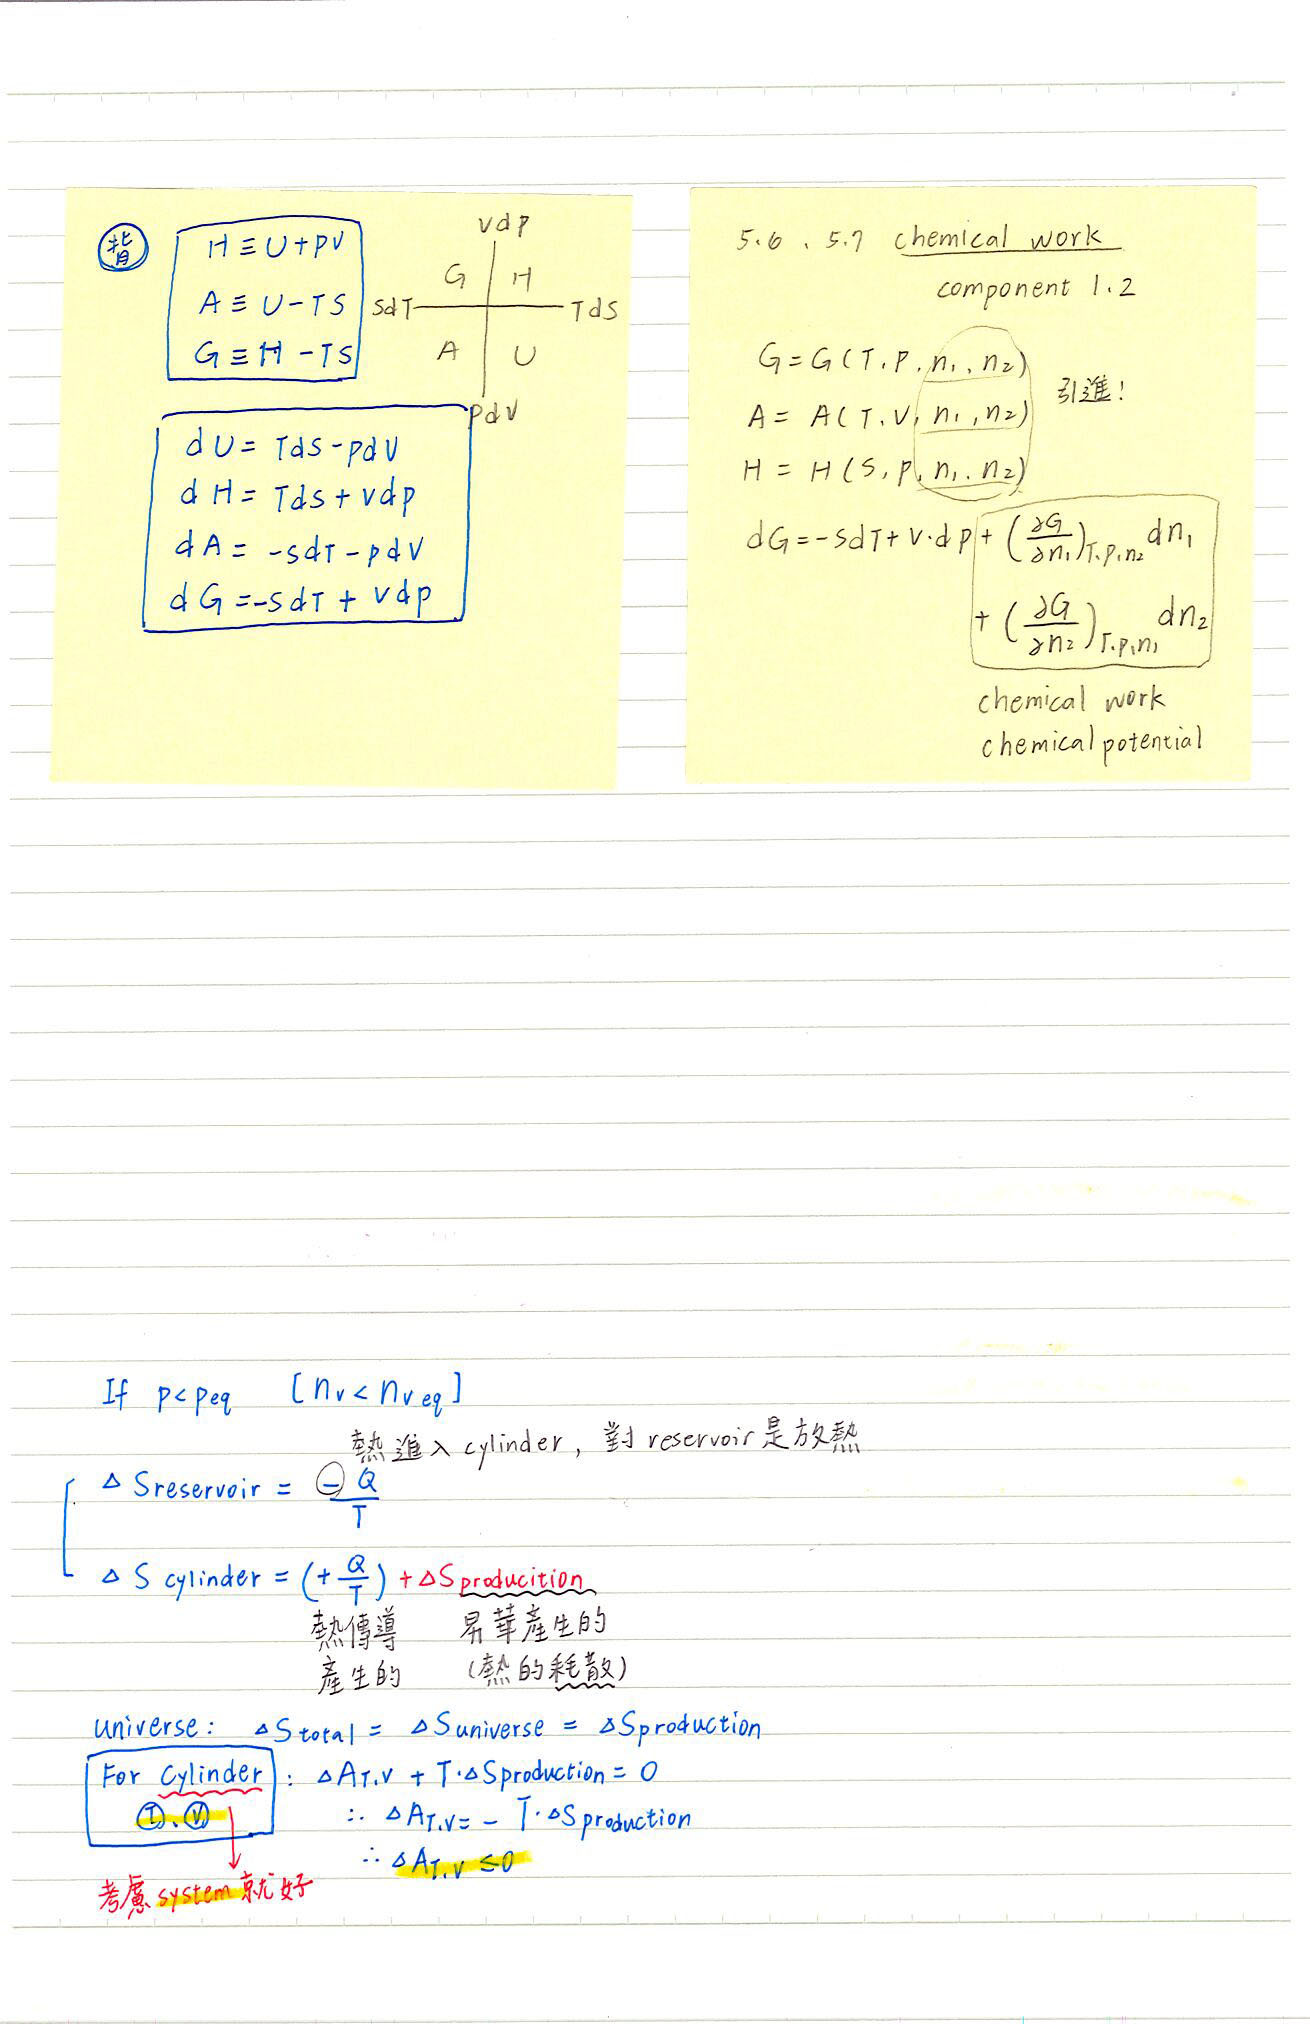 背
H ≡ U + PV
A ≡ U - TS
G ≡ H - TS
Vdp
G H
SdT TdS
A U
PdV
dU = TdS - pdV
dH = TdS + Vdp
dA = -SdT - pdV
dG = -SdT + Vdp
5.6、5.7 chemical work
component 1.2
G = G(T, P, n₁, n₂)
A = A(T, V, n₁, n₂)
引進!
H = H(S, P, n₁, n₂)
dG = -SdT + V·dp + (∂G/∂n₁)T,P,n₂ dn₁
+ (∂G/∂n₂)T,P,n₁ dn₂
chemical work
chemical potential
If p < peq [nv < nv eq]
熱進入 cylinder, 對 reservoir 是放熱
△Sreservoir = -Q/T
△S cylinder = (+Q/T) + △Sproducition
熱傳導 昇華產生的
產生的 (熱的耗散)
universe: △Stotal = △Suniverse = △Sproduction
For Cylinder : △AT,V + T·△Sproduction = 0
T、V ∴ △AT,V = - T·△Sproduction
∴ △AT,V ≤ 0
考慮 system 就好